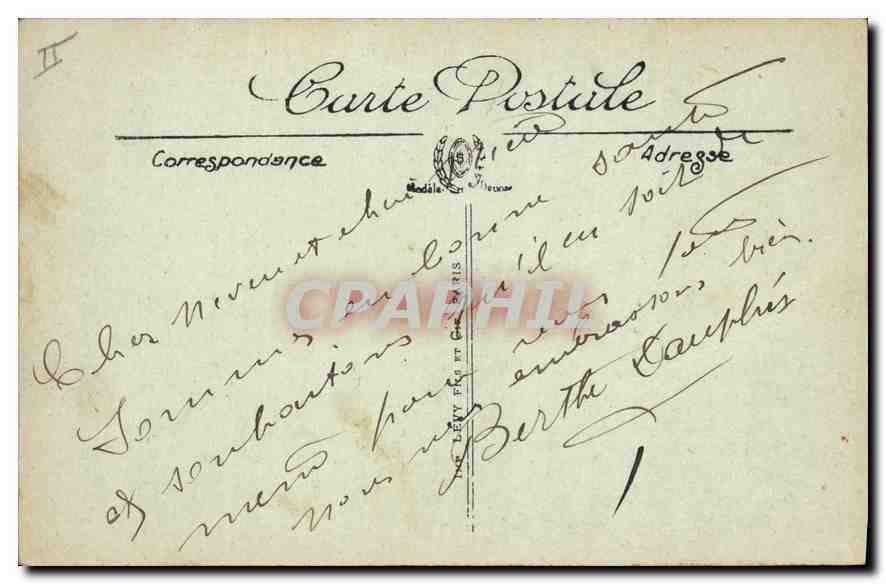 II
Carte Postale
Correspondance
Adresse
Modèle
IMP LEVY FILS ET Cie PARIS
CPAPHIL
Cher Neveu et chère nièce
Sommes en bonne santé
et souhaitons qu'il en soit de
meme pour vous tous
nous vous embrassons bien.
Berthe Dauphés